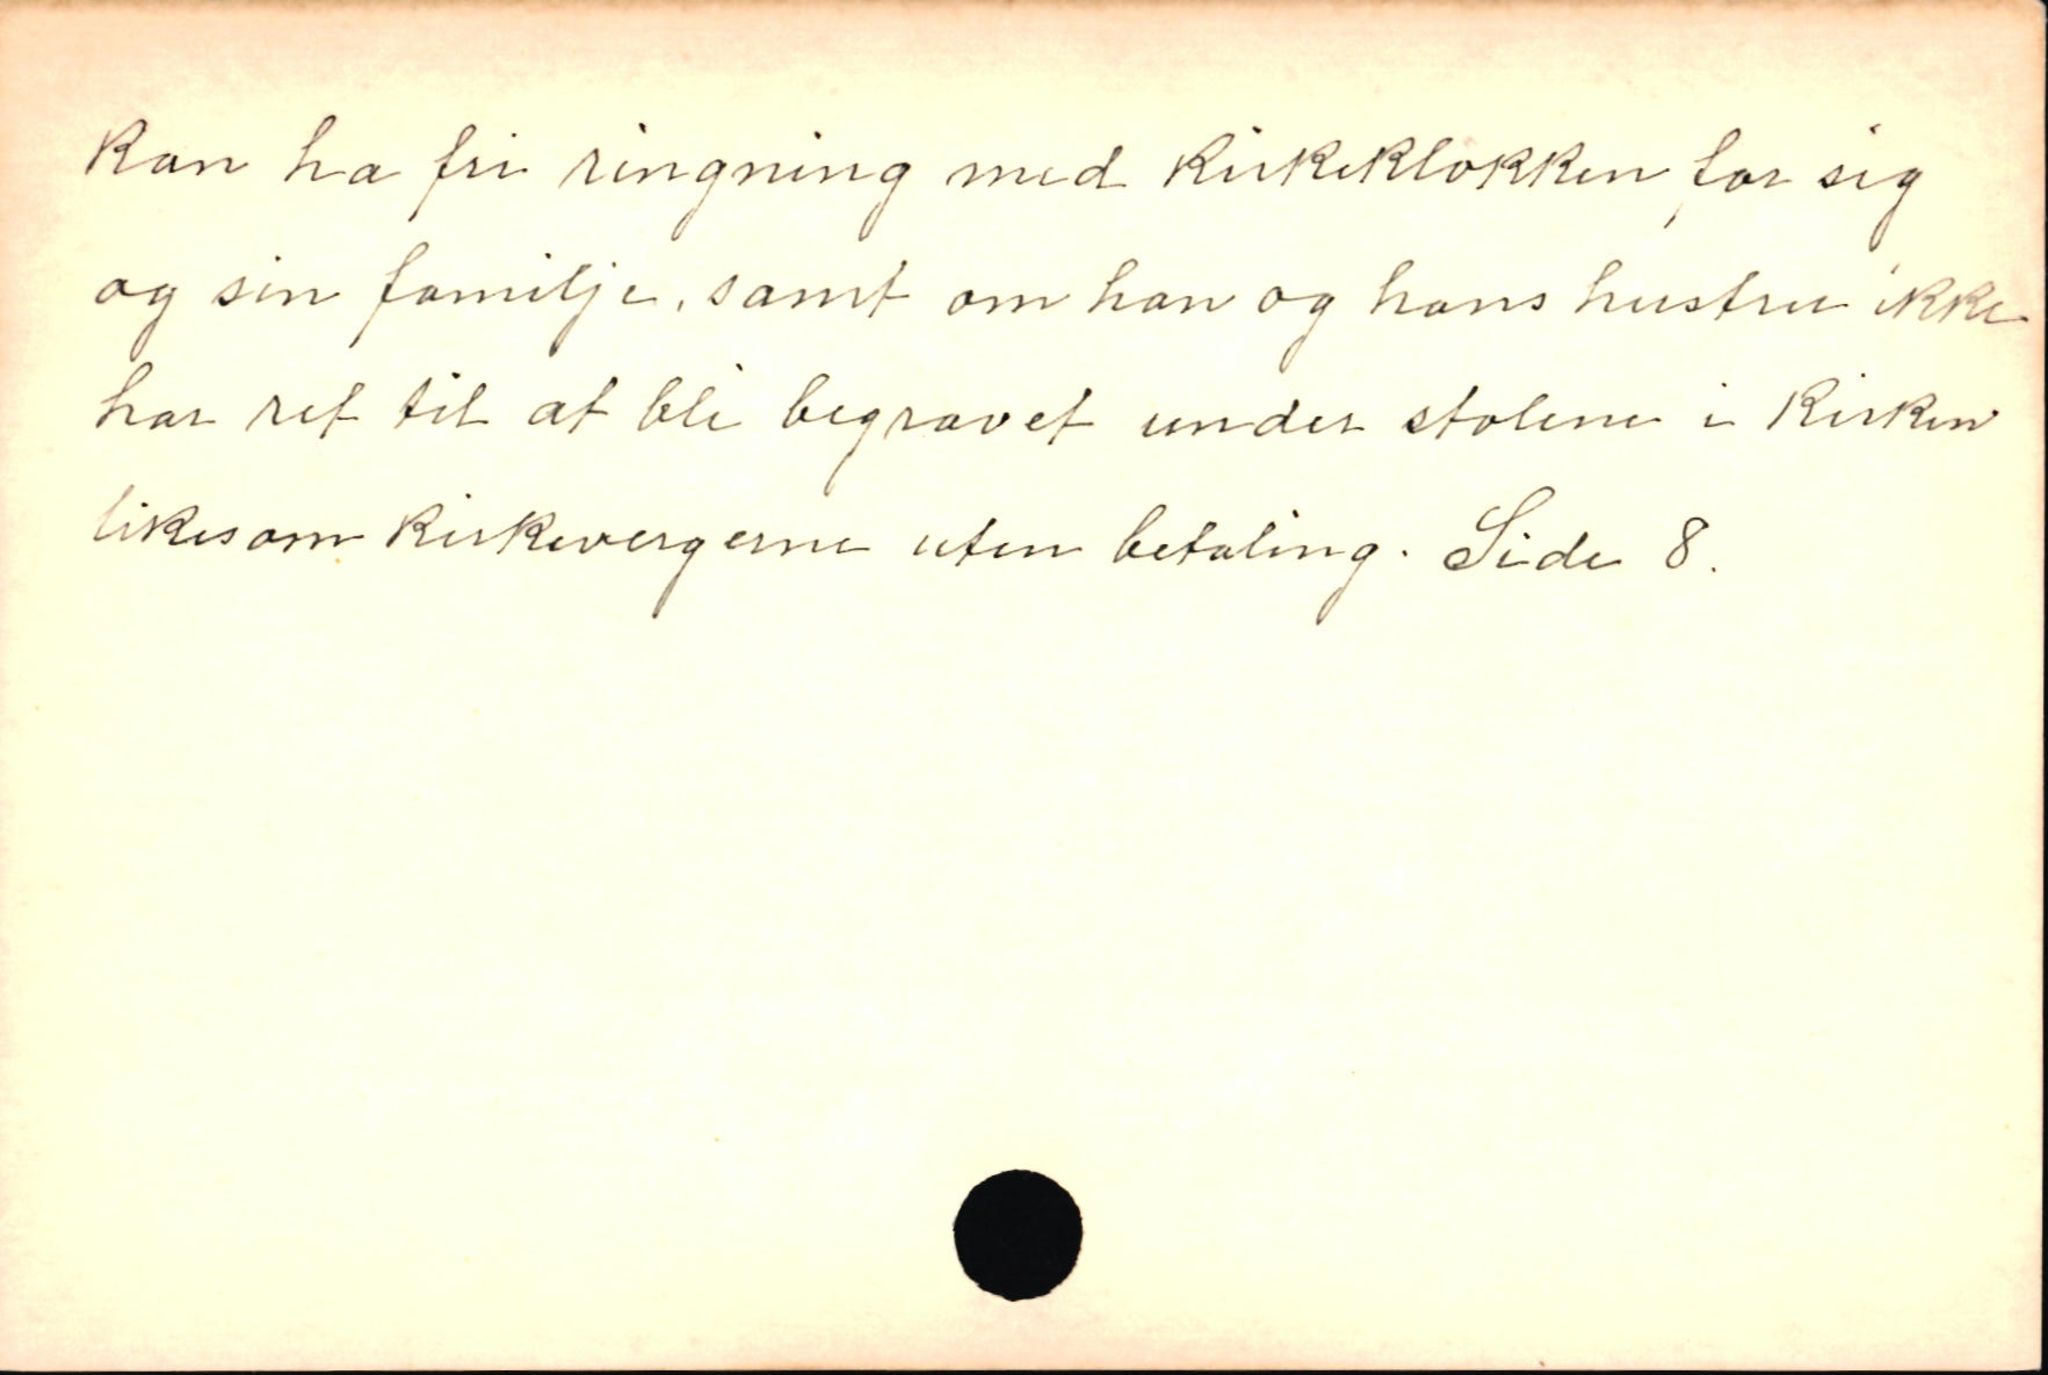 kan ha fri ringning med kirkeklokken for sig
og sin familje, samt om han og hans hustru ikke
har ret til at bli begravet under stolene i kirken
likesom kirkevergerne uten betaling. Side 8.